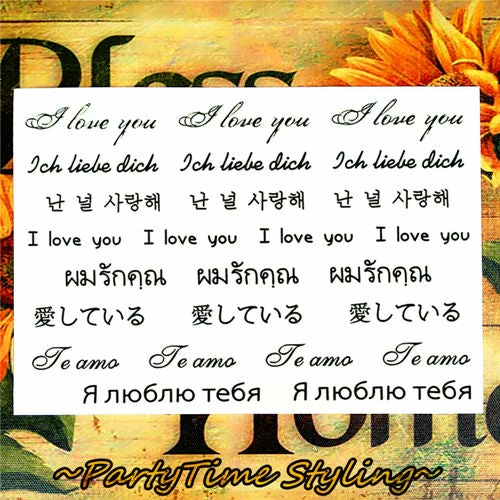 Bless
I love you I love you I love you
Ich liebe dich Ich liebe dich Ich liebe dich
난 널 사랑해 난 널 사랑해 난 널 사랑해
I love you I love you I love you I love you
ผมรักคุณ ผมรักคุณ ผมรักคุณ
愛している 愛している 愛している
Te amo Te amo Te amo Te amo
Я люблю тебя Я люблю тебя
Home
~PartyTime Styling~